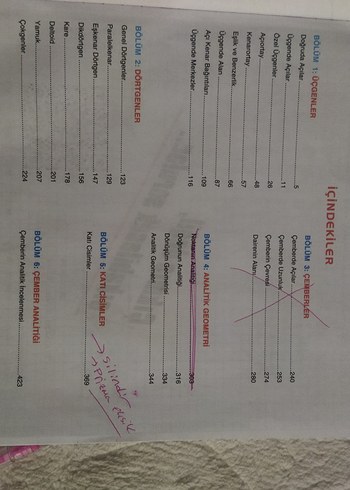 İÇİNDEKİLER
BÖLÜM 1: ÜÇGENLER
Doğruda Açılar 5
Üçgende Açılar 11
Özel Üçgenler 26
Açıortay 48
Kenarortay 57
Eşlik ve Benzerlik 66
Üçgende Alan 87
Açı Kenar Bağıntıları 109
Üçgende Merkezler 116
BÖLÜM 2: DÖRTGENLER
Genel Dörtgenler 123
Paralelkenar 129
Eşkenar Dörtgen 147
Dikdörtgen 156
Kare 178
Deltoid 201
Yamuk 207
Çokgenler 224
BÖLÜM 3: ÇEMBERLER
Çemberde Açılar 240
Çemberde Uzunluk 253
Çemberin Çevresi 274
Dairenin Alanı 280
BÖLÜM 4: ANALİTİK GEOMETRİ
Analitiği 309
Doğrunun Analitiği 316
Dönüşüm Geometrisi 334
Analitik Geometri 344
BÖLÜM 5: KATI CİSİMLER
Katı Cisimler 369
→ silindir
→ prizma
BÖLÜM 6: ÇEMBER ANALİTİĞİ
Çemberin Analitik İncelenmesi 423